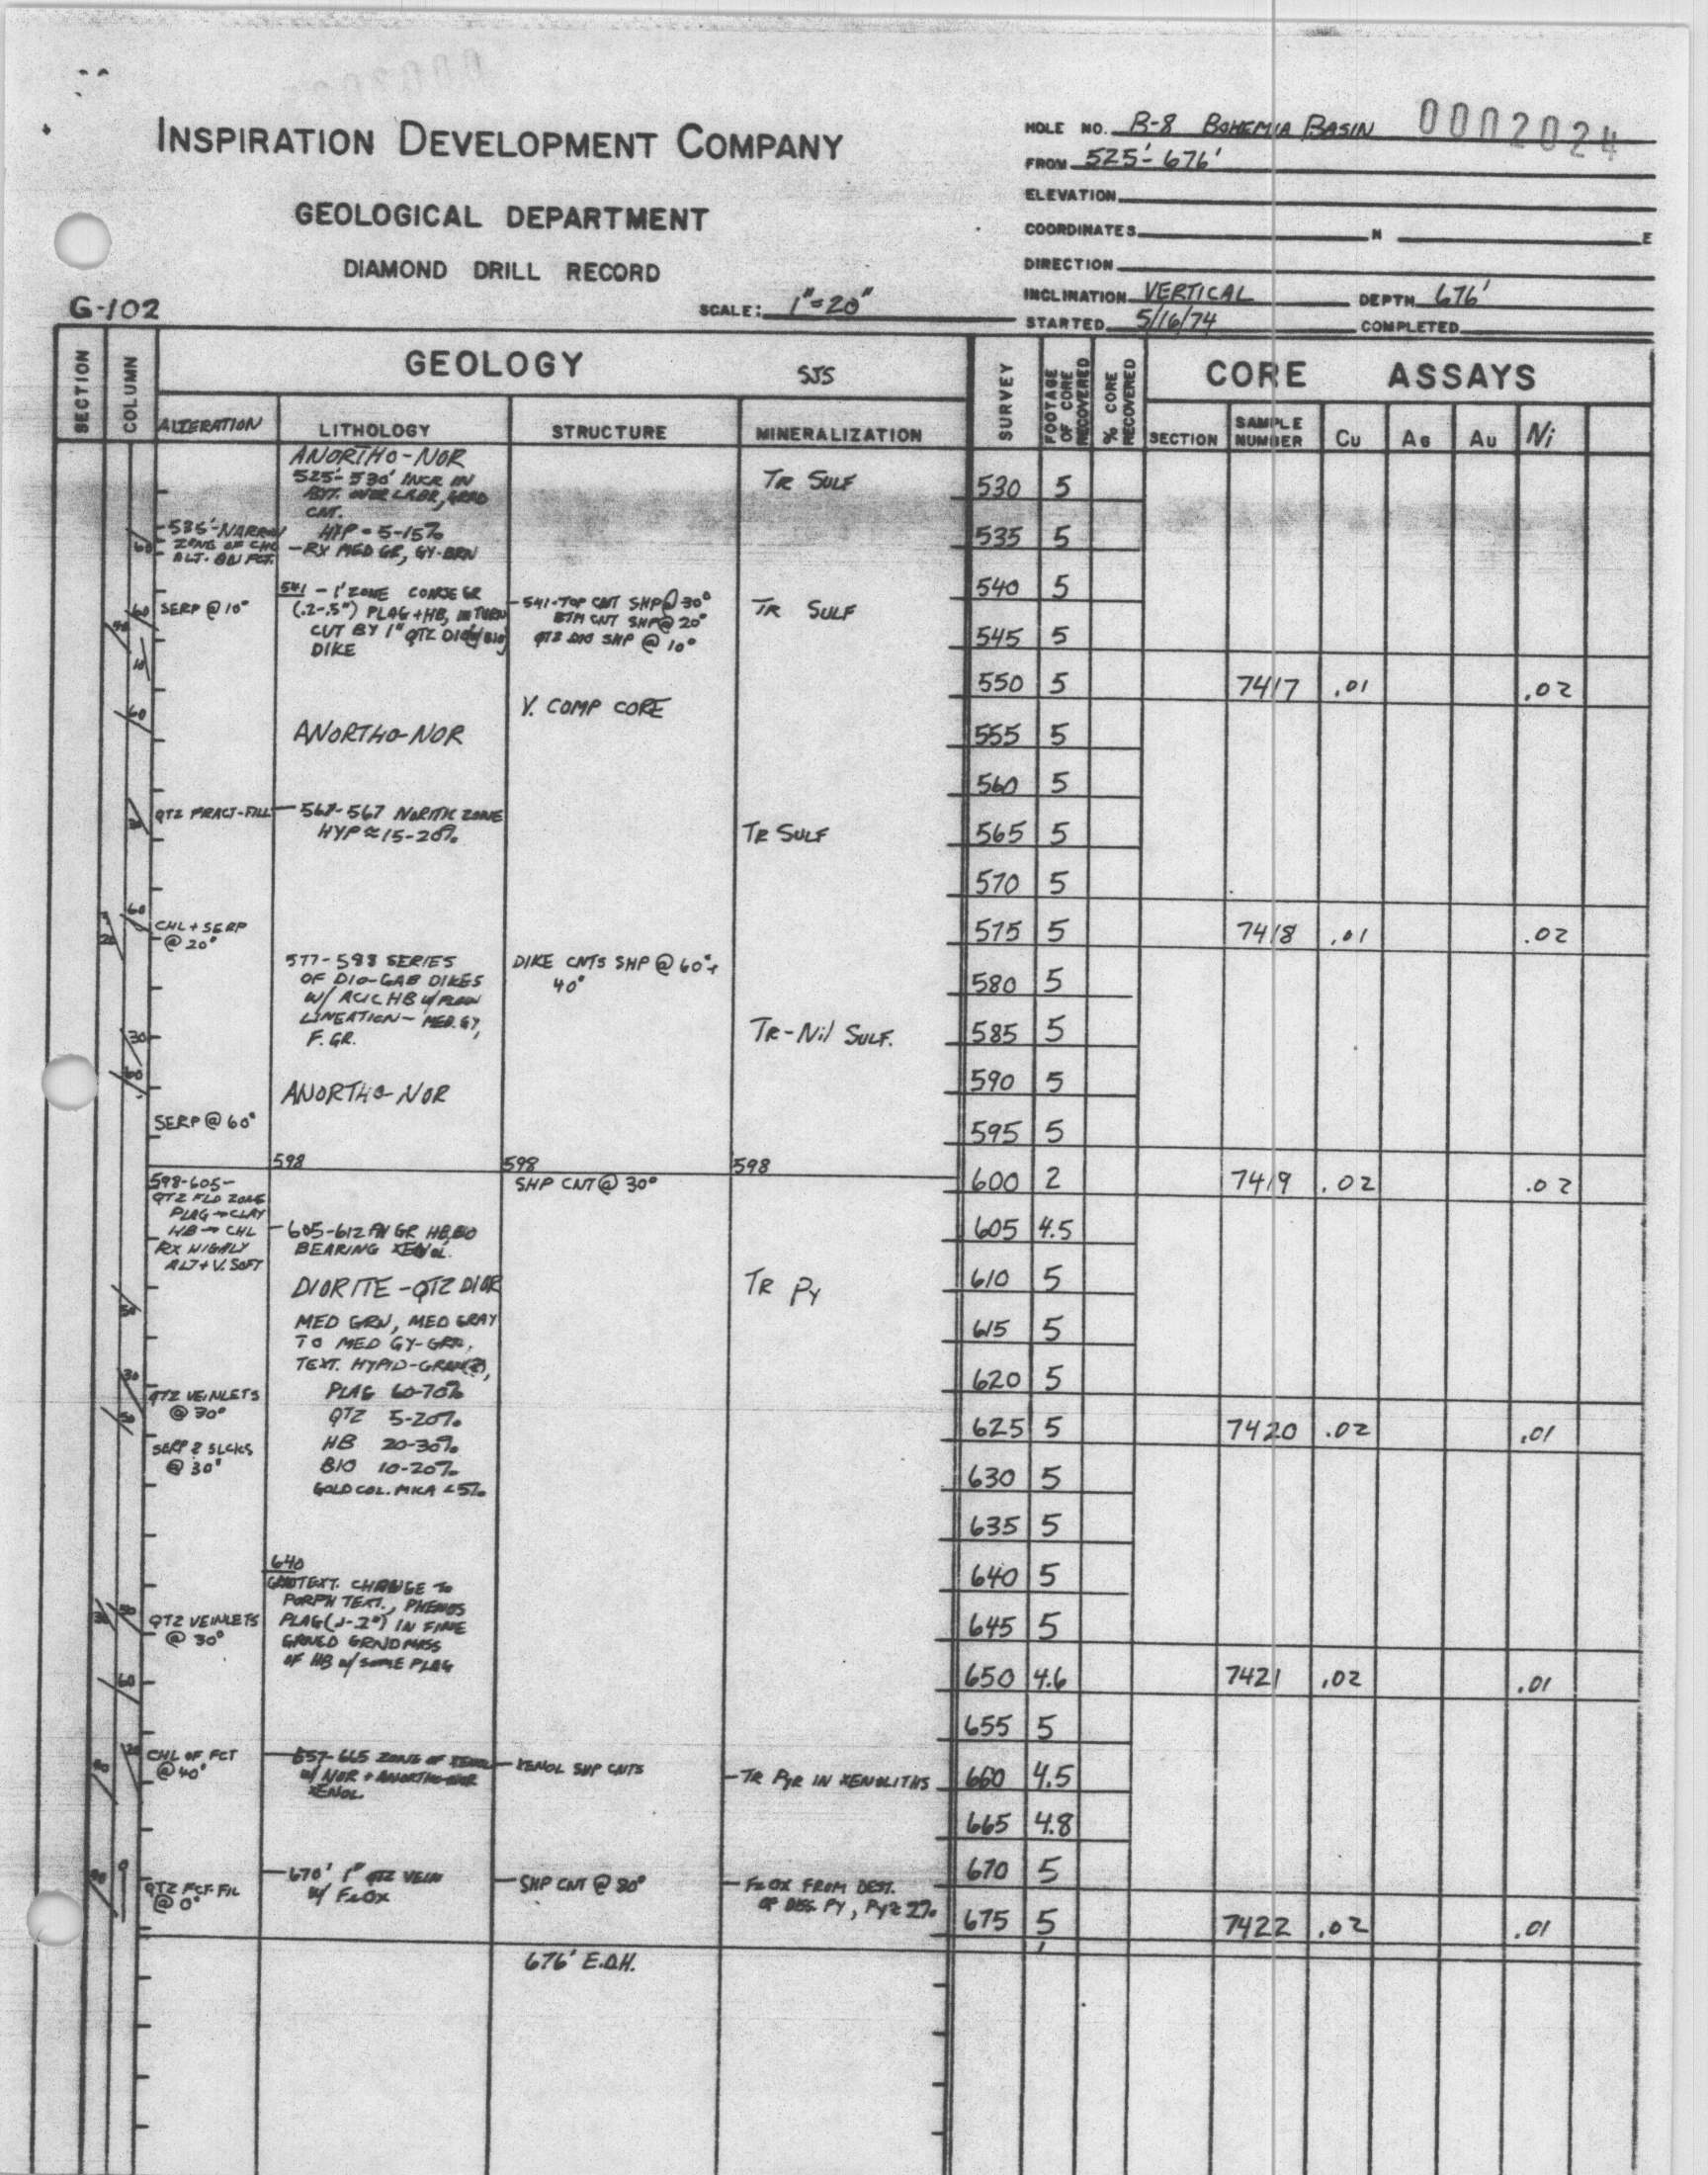 INSPIRATION DEVELOPMENT COMPANY
GEOLOGICAL DEPARTMENT
DIAMOND DRILL RECORD
G-102
SCALE: 1"=20"
HOLE NO. B-8 BOHEMIA BASIN 0002024
FROM 525'-676'
ELEVATION
COORDINATES N E
DIRECTION
INCLINATION VERTICAL DEPTH 676'
STARTED 5/16/74 COMPLETED
SECTION
COLUMN
GEOLOGY SJS
ALTERATION
LITHOLOGY
STRUCTURE
MINERALIZATION
SURVEY
FOOTAGE OF CORE RECOVERED
% CORE RECOVERED
CORE ASSAYS
SECTION
SAMPLE NUMBER
Cu
AG
AU
Ni
535'-NARROW
ZONE OF CHL
ALT. ON FCT.
SERP @ 10°
QTZ FRACT-FILL
CHL + SERP
@ 20°
SERP @ 60°
598-605-
QTZ FLD ZONE
PLAG → CLAY
HB → CHL
RX HIGHLY
ALT + V. SOFT
QTZ VEINLETS
@ 30°
SERP & SLCKS
@ 30°
QTZ VEINLETS
@ 30°
CHL OF FCT
@ 40°
QTZ FCT FIL
@ 0°
ANORTHO-NOR
525'-530' INCR IN
CNT.
HYP = 5-15%
- RX MED GR, GY-BRN
541 - 1' ZONE COARSE GR
(.2-.5") PLAG + HB, IN TURN
CUT BY 1" QTZ DIO
DIKE
ANORTHO-NOR
567 NORITIC ZONE
HYP ≈ 15-20%
577-598 SERIES
OF DIO-GAB DIKES
W/ ACIC HB W/ FLOW
LINEATION - MED. GY,
F. GR.
ANORTHO-NOR
598
- 605-612 FN GR HB, BIO
BEARING XENOL.
DIORITE - QTZ DIOR
MED GRN, MED GRAY
TO MED GY-GRN,
TEXT. HYPID-GRAN(?),
PLAG 60-70%
QTZ 5-20%
HB 20-30%
BIO 10-20%
GOLD COL. MICA <5%
640
TEXT. CHANGE TO
PORPH TEXT., PHENOS
PLAG (.1-.2") IN FINE
GRNED GRNDMASS
OF HB W/ SOME PLAG
657-665 ZONE OF
W/ NOR + ANORTHO-NOR
XENOL.
- 670' 1" QTZ VEIN
W/ FeOX
- 541-TOP CNT SHP @ 30°
BTM CNT SHP @ 20°
QTZ DIO SHP @ 10°
V. COMP CORE
DIKE CNTS SHP @ 60° +
40°
598
SHP CNT @ 30°
- XENOL SHP CNTS
- SHP CNT @ 80°
676' E.O.H.
TR SULF
TR SULF
TR SULF
TR-Nil SULF.
598
TR Py
- TR PYR IN XENOLITHS
- FeOX FROM DEST.
OF DISS. PY, PY ≈ 2%
530 5
535 5
540 5
545 5
550 5 7417 .01 .02
555 5
560 5
565 5
570 5
575 5 7418 .01 .02
580 5
585 5
590 5
595 5
600 2 7419 .02 .02
605 4.5
610 5
615 5
620 5
625 5 7420 .02 .01
630 5
635 5
640 5
645 5
650 4.6 7421 .02 .01
655 5
660 4.5
665 4.8
670 5
675 5 7422 .02 .01
1